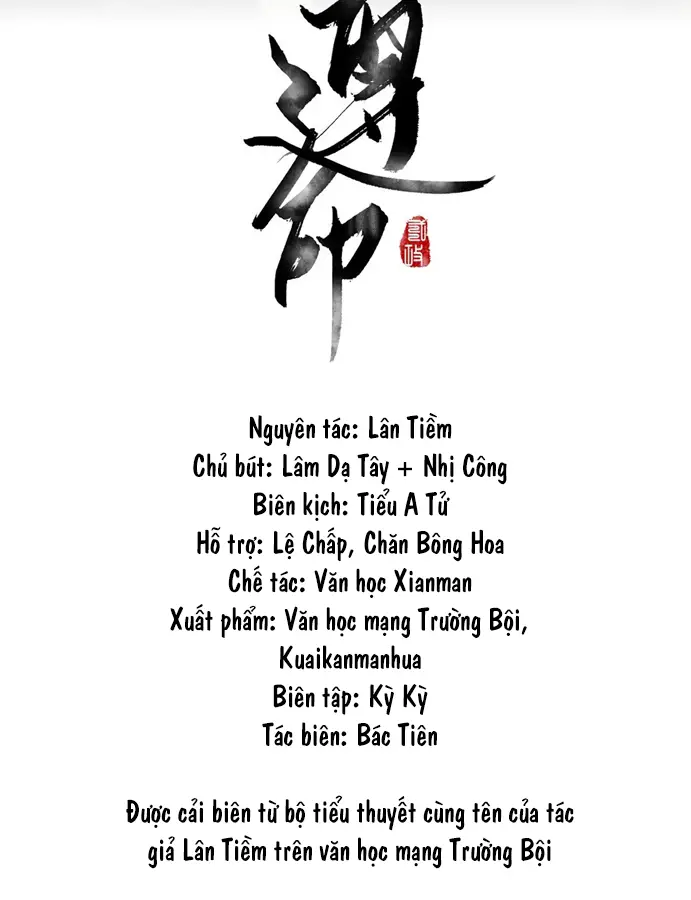 Nguyên tác: Lân Tiềm
Chủ bút: Lâm Dạ Tây + Nhị Công
Biên kịch: Tiểu A Tử
Hỗ trợ: Lệ Chấp, Chăn Bông Hoa
Chế tác: Văn học Xianman
Xuất phẩm: Văn học mạng Trường Bội,
Kuaikanmanhua
Biên tập: Kỳ Kỳ
Tác biên: Bác Tiên
Được cải biên từ bộ tiểu thuyết cùng tên của tác
giả Lân Tiềm trên văn học mạng Trường Bội